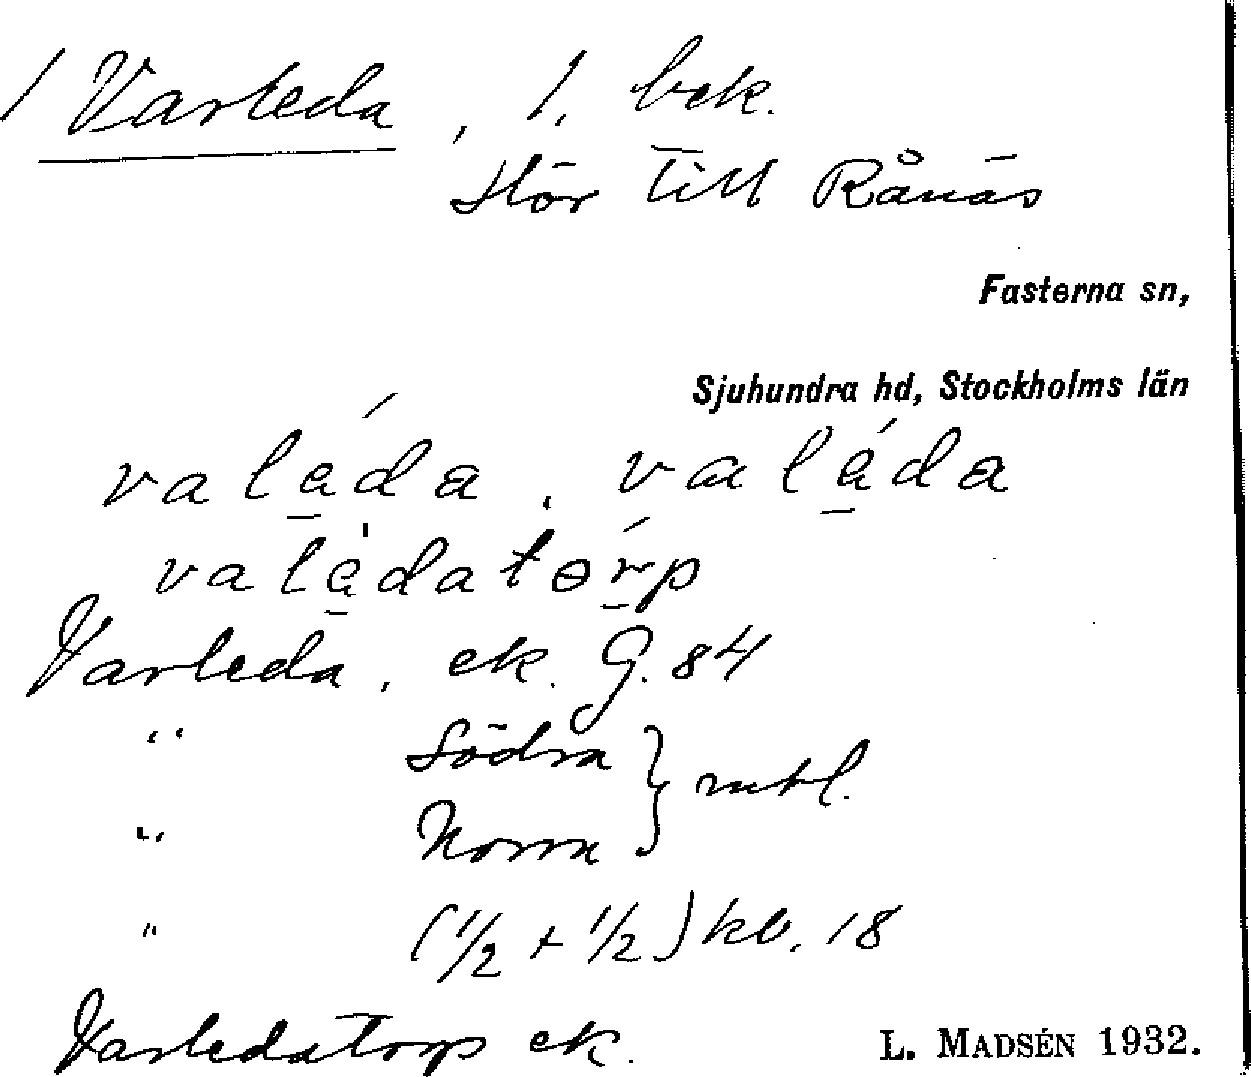 / Varleda, 1. bek.
Hör till Rånäs
Fasterna sn,
Sjuhundra hd, Stockholms län
valá̲da, valá̲da
vala̲datɵr̲p
Varleda, ek. G. 84
" Södra } mtl.
" Norra
" (1/2 + 1/2) kb. 18
Varledatorp ek.
L. MADSÉN 1932.